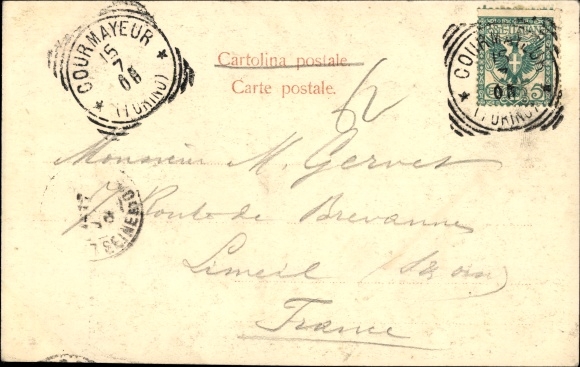 COURMAYEUR
15
7
06
(TORINO)
Cartolina postale.
Carte postale.
COURMAYEUR
(TORINO)
Monsieur M. Gervet
7 Route de Brevannes
Limeil (S & oise)
France